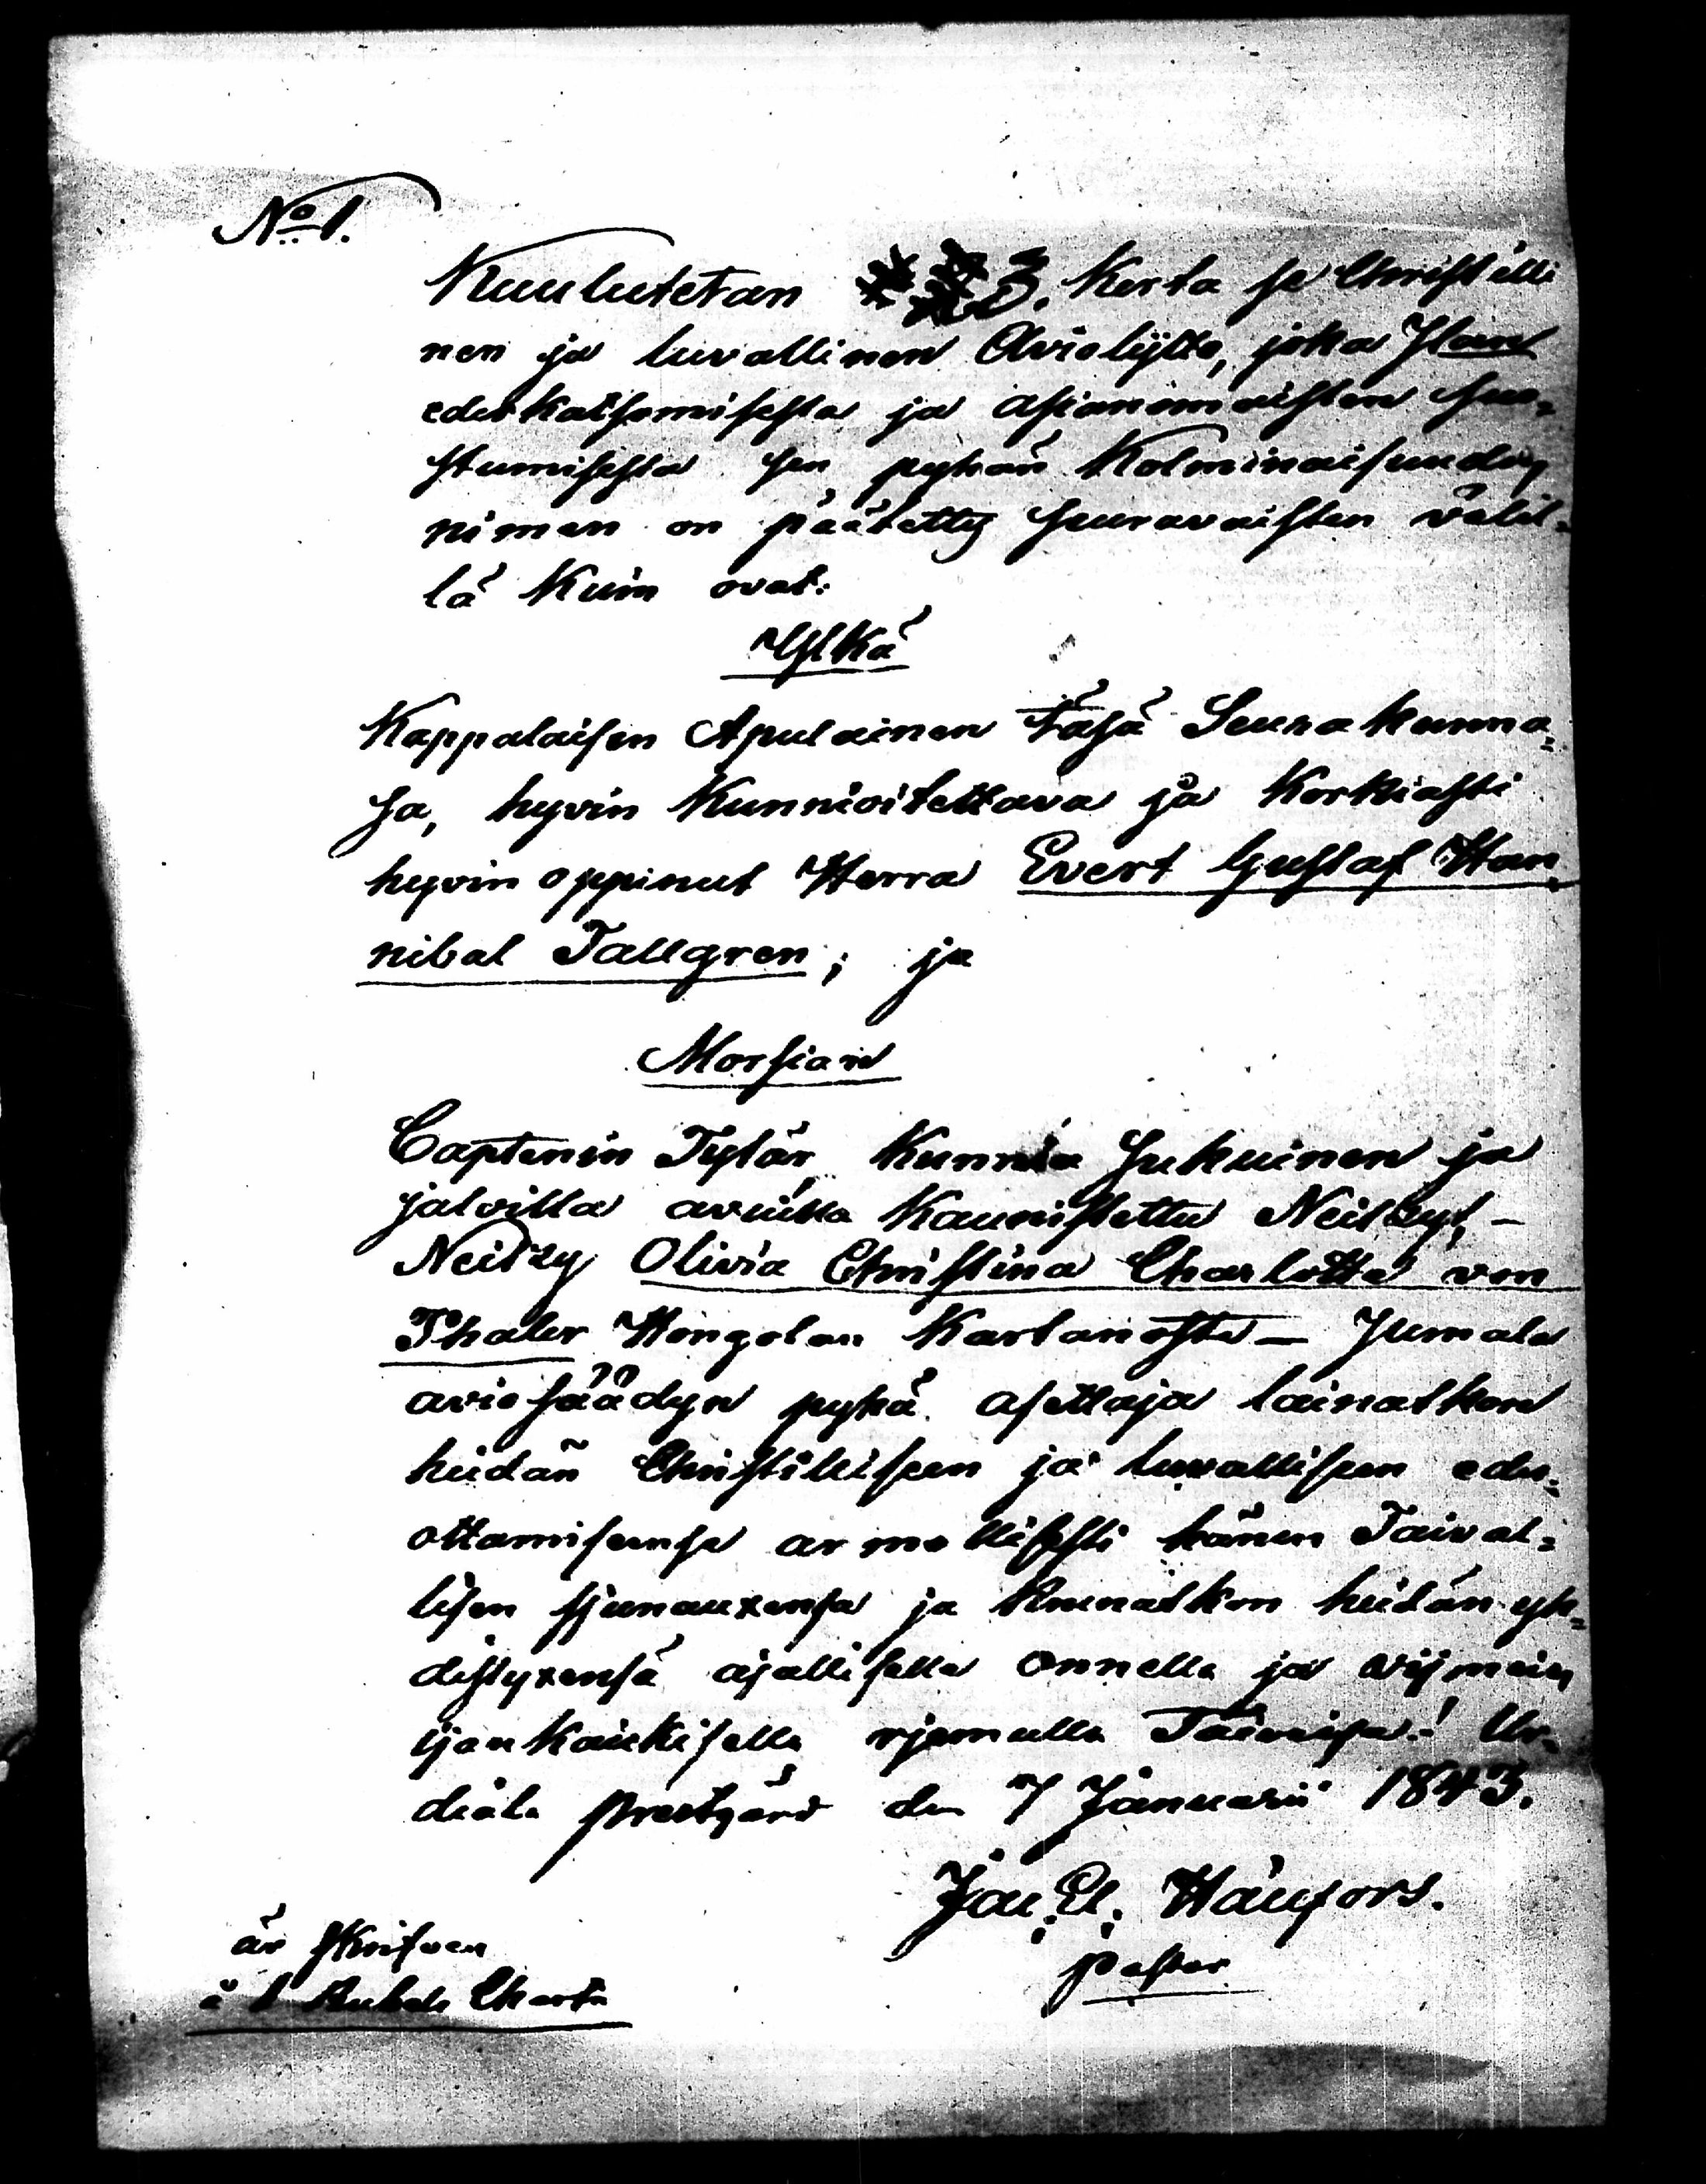 No 1.
Kuulutetan 3. Kerta se Christilli
nen ja luvallinen Avioliјtto, joka Ilan
edeskatsomisesta ja asianomaisten suo=
stumisesta sen pyhän Kolminaisuuden
nimen on päätetty seuravaisten välil=
lä Kuin ovat:
Ylkä
Kappalaisen Apulainen täsä Seurakunna=
sa, hyvin Kunnioitettava ja Korkiasti
hyvin oppinut Herra Evert Gustaf Han=
nibal Tallgren; ja
Morsian
Captenin Tytär, Kunnia sukuinen ja
jaloilla avuilla Kaunistettu Neitzyt, -
Neitzy Olivia Christina Charlotta von
Thaler Hongolan Kartanosta - Jumala
aviosäädyn pyhä asettaja lainatkon
heidän Christilliseen ja luvalliseen edes=
ottamiseensa armollisesti hänen Taival=
lisen siunauxensa ja kruunatkon heidän yh=
distyxensä ajallisella onnella ja viјmein
ijankaickisella riemulla Taivaisa! Ur=
diala Prestgård den 7 Januarii 1843.
Joh. El. Häufors.
Pastor
är skrifven
å 1 Rubels Charta